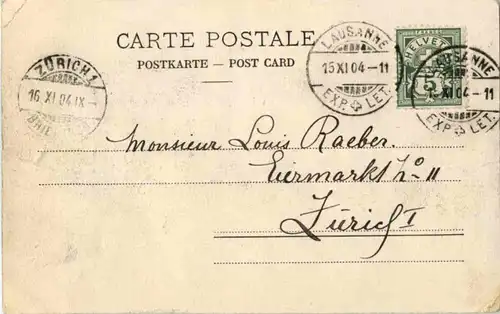 CARTE POSTALE
POSTKARTE — POST CARD
ZÜRICH 1
16 XI 04 IX
LAUSANNE
15 XI 04 — 11
EXP. LET.
HELVETIA
5
LAUSANNE
XI 04 — 11
EXP. LET.
Monsieur Louis Raeber.
Eiermarkt No 11
Zürich I